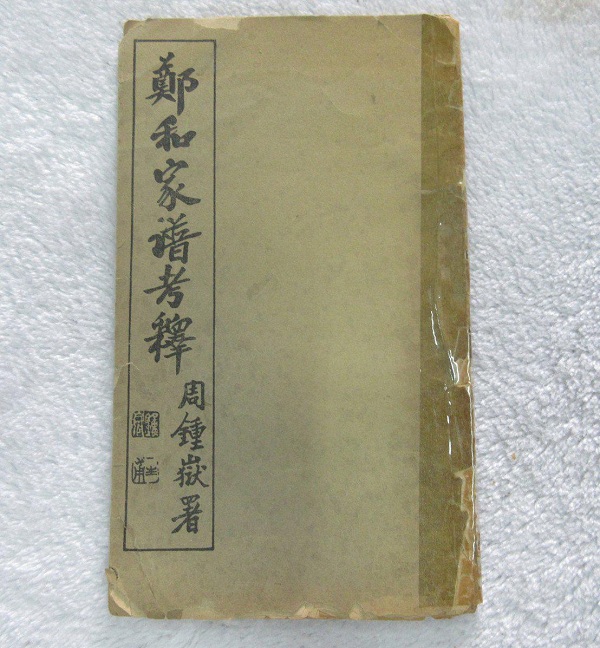 鄭和家譜考釋
周鍾嶽署